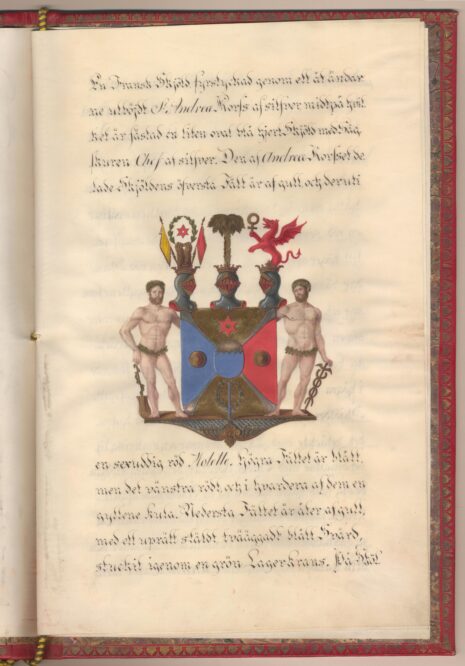 En Fransk Skjöld fyrstyckad genom ett åt ändar
ne utböjdt S:t Andreæ Korss af silfver midtpå hvil
ket är fästad en liten oval blå hjert Skjöld med låg
skuren Chef af silfver. Den af Andreæ Korsset de
lade Skjöldens öfversta Fält är af guld, och deruti
en sexuddig röd Molette, högra Fältet är blått,
men det vänstra rödt, och i hvardera af dem en
gyllene kula. Nedersta Fältet är åter af guld,
med ett upprätt stäldt tvääggadt blått Svärd,
stuckit igenom en grön Lagerkrans. På Sköl